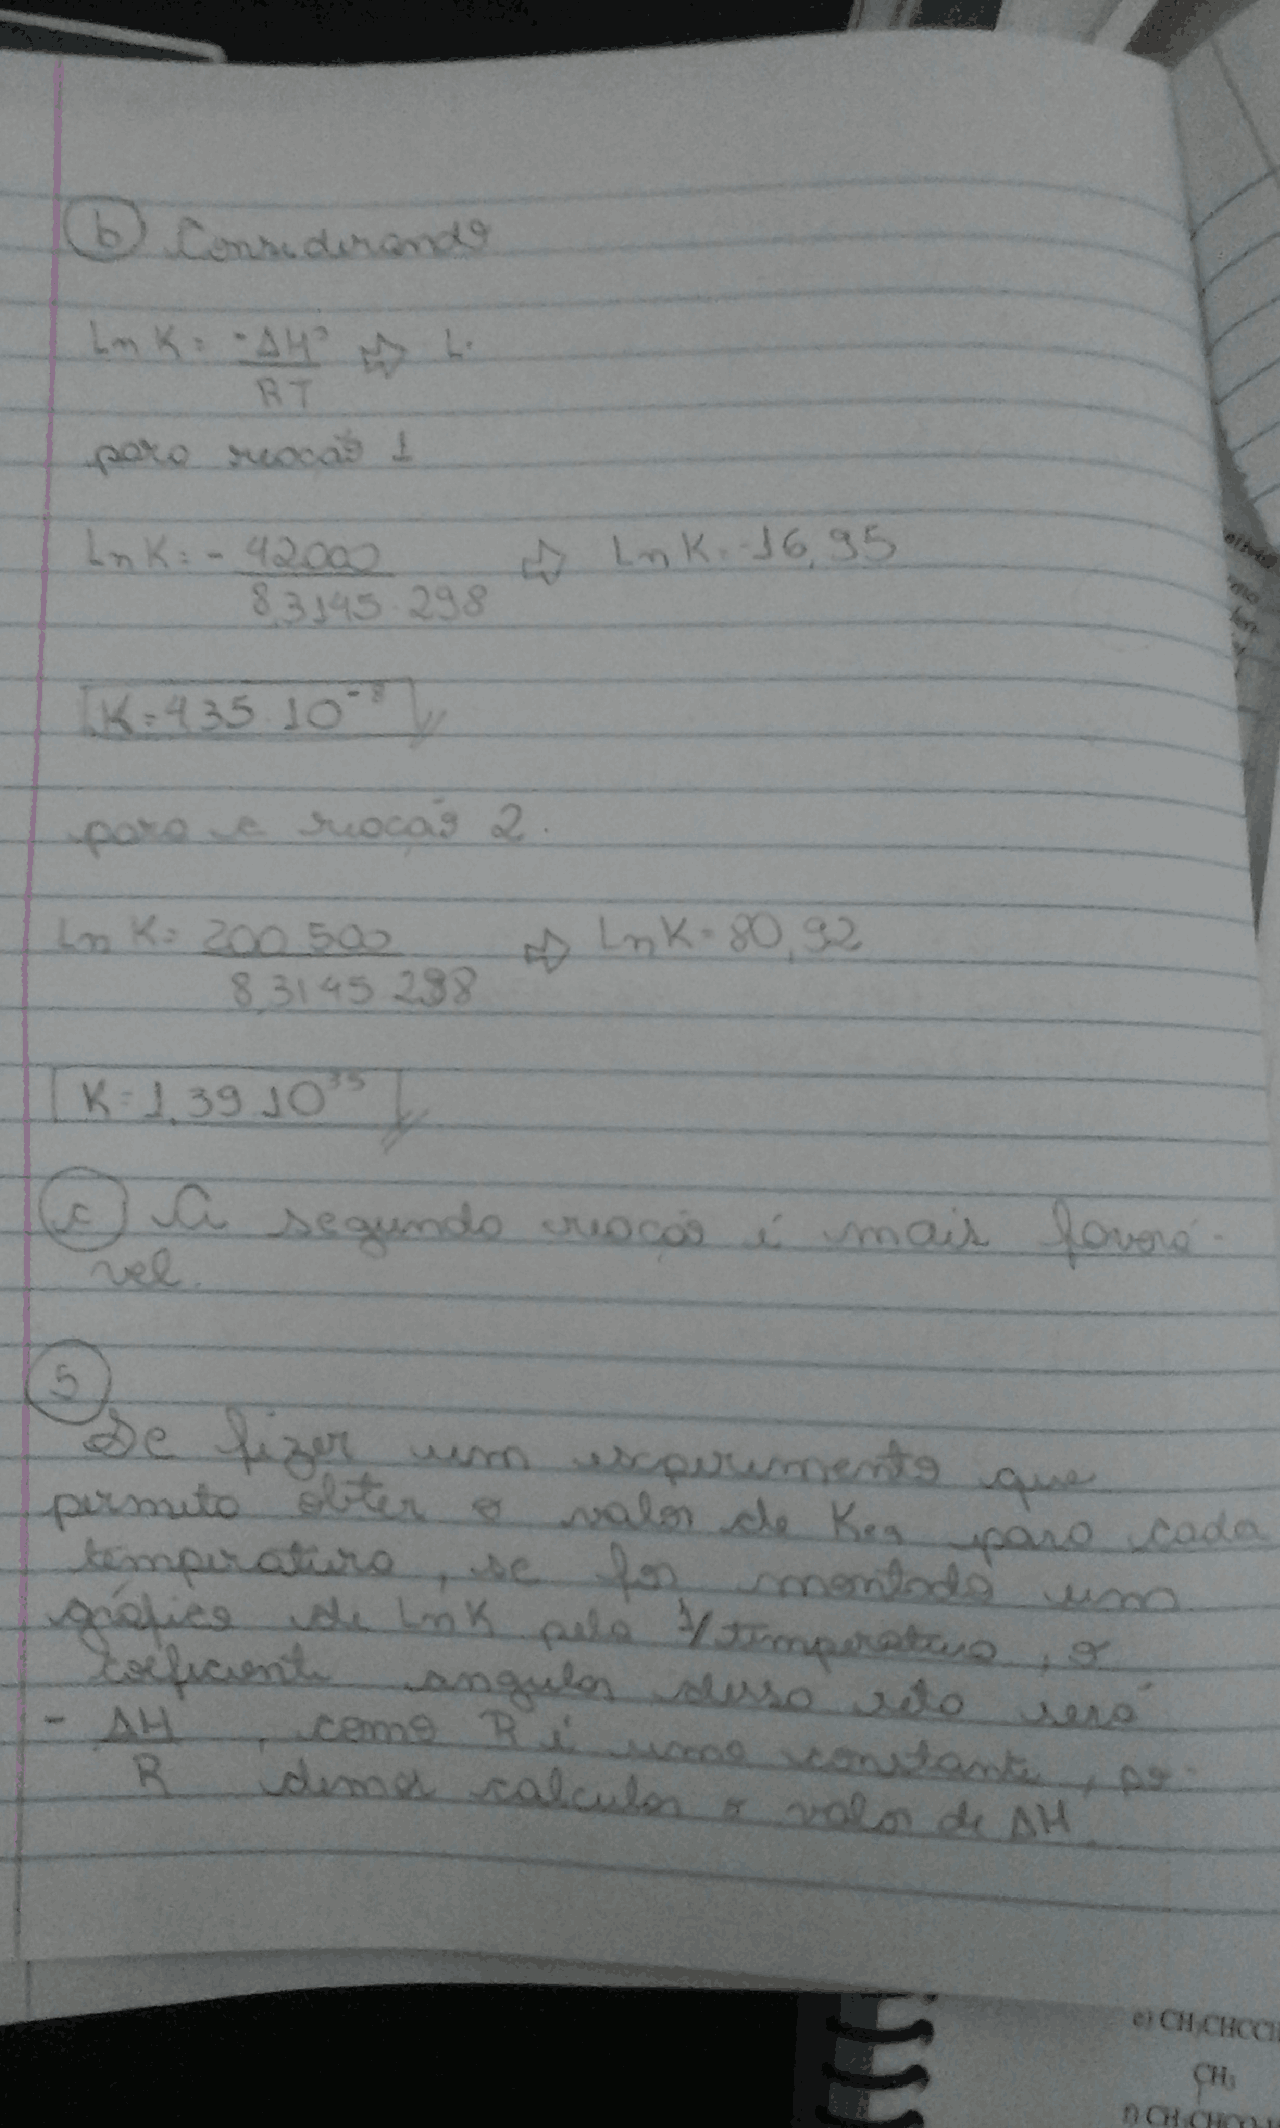 b Considerando
Ln K = -ΔH° ⇨ L
RT
para reação 1
Ln K = - 42000 ⇨ Ln K = -16,95
8,3145 · 298
K = 4,35 · 10⁻⁸
para a reação 2.
Ln K = 200 500 ⇨ Ln K = 80,92
8,3145 298
K = 1,39 10³⁵
c A segunda reação é mais favorá-
vel.
5
Se fizer um experimento que
permita obter o valor de Keq para cada
temperatura, se for montado um
gráfico de Ln K pela 1/temperatura, o
coeficiente angular dessa reta será
- ΔH , como R é uma constante, po-
R demos calcular o valor de ΔH.
e) CH₃CHCCH
CH₃
f) CH₃CHCO